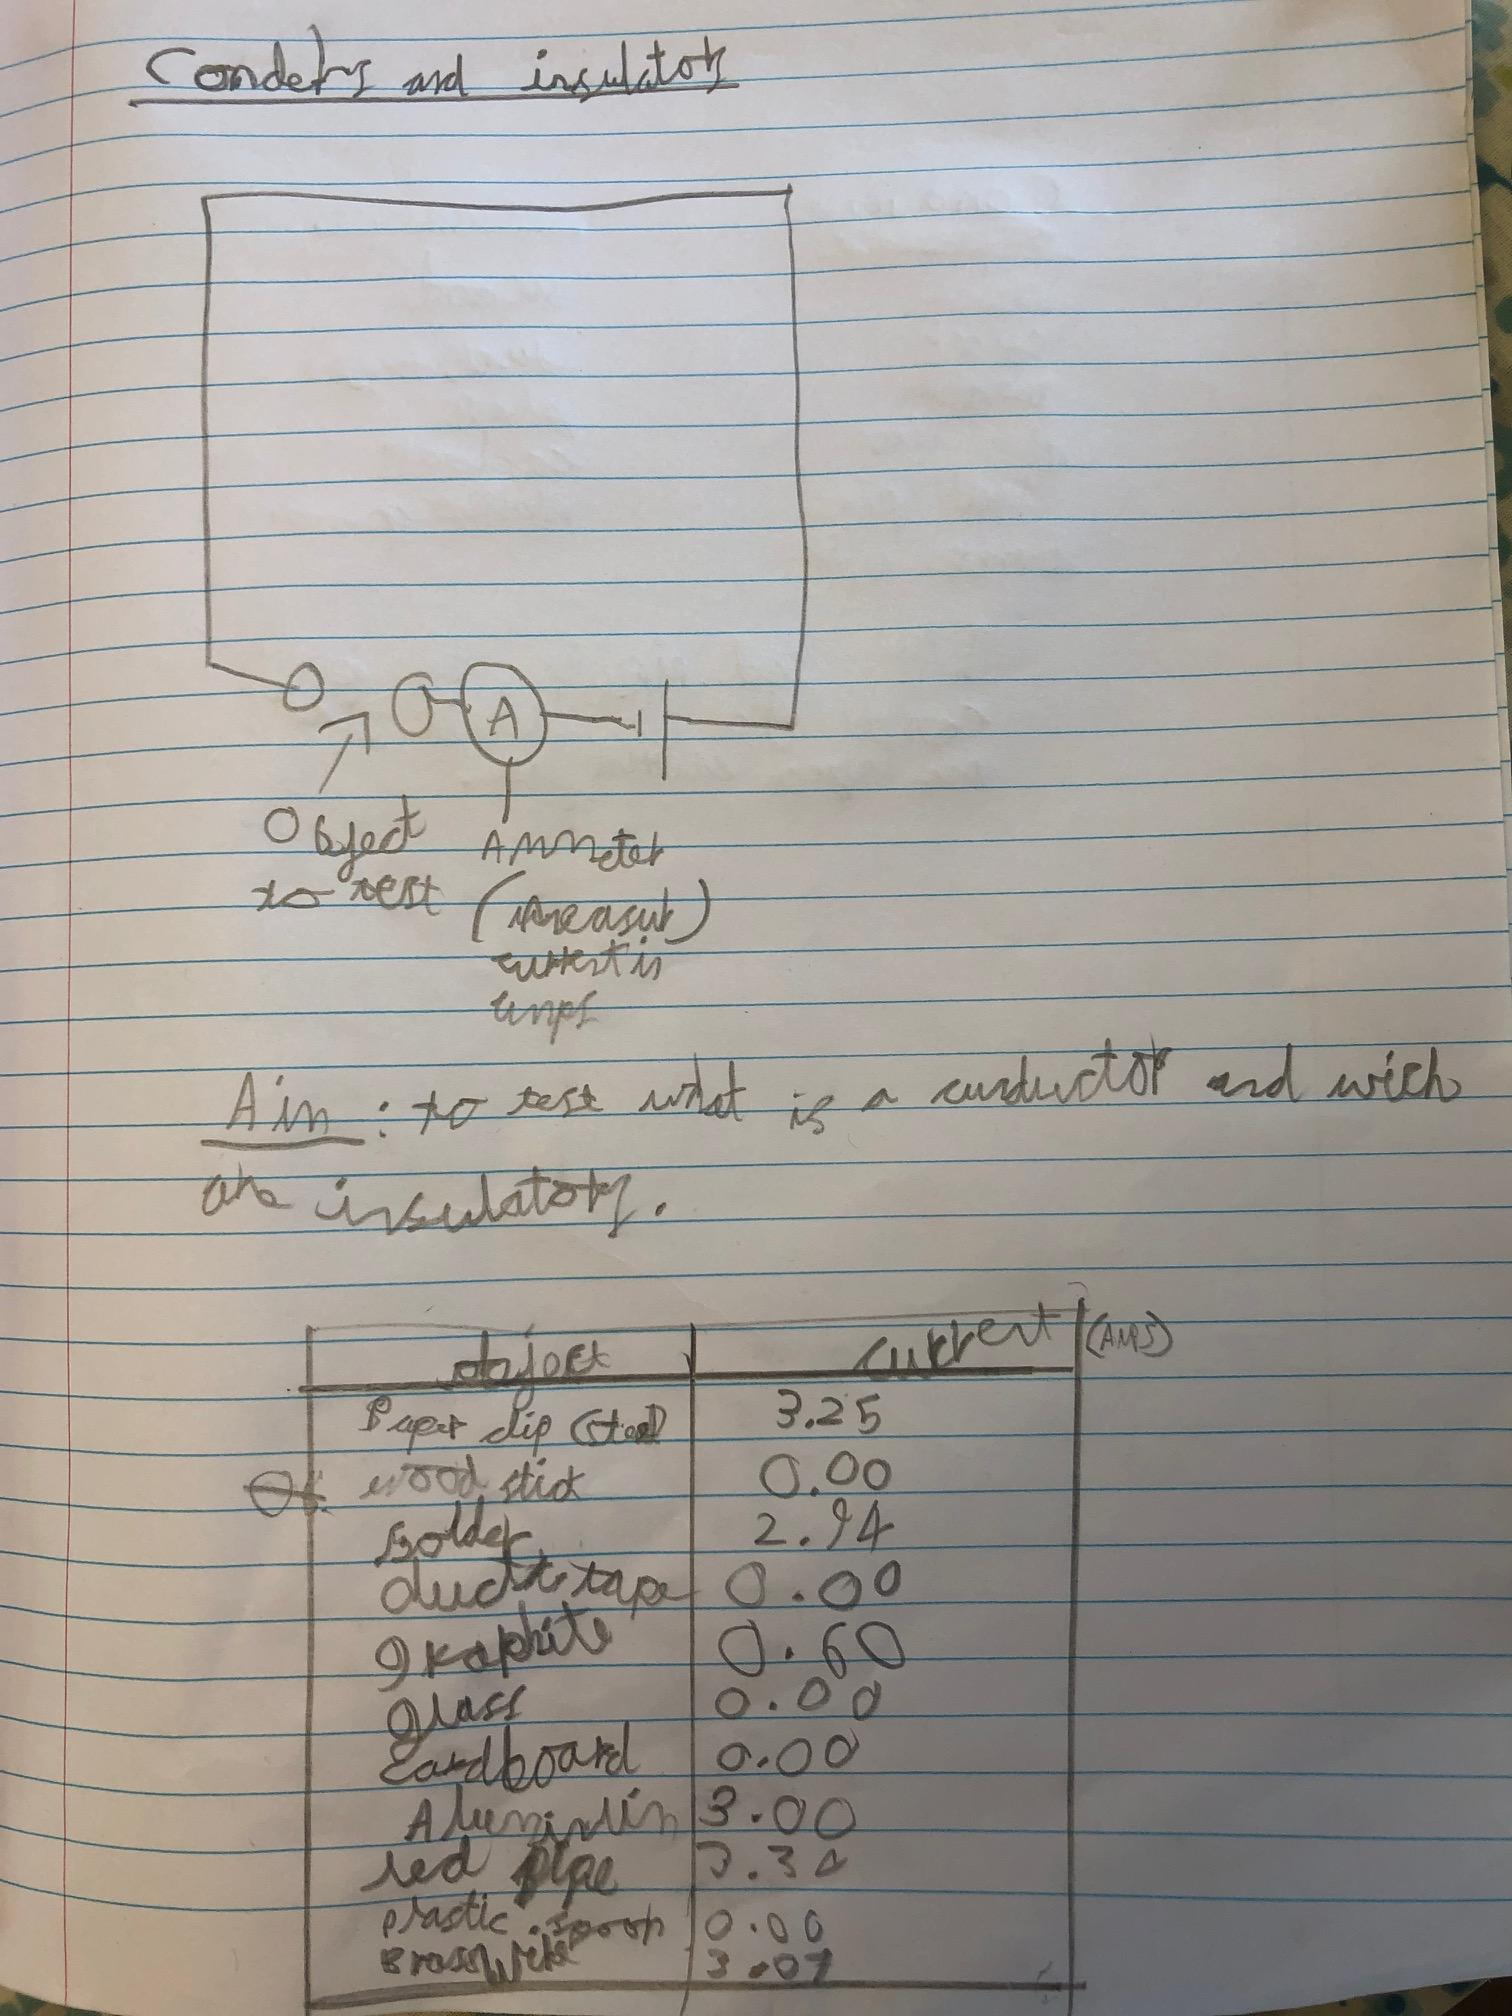 Condetrs and insulators
A
Object
to test
Ammeter
(measur)
current in
amps
Aim : to test what is a conductor and wich
are insulators.
object current (AMPS)
Paper clip (steel) 3.25
wood stick 0.00
Solder 2.94
duct tape 0.00
graphite 0.60
glass 0.00
Cardboard 0.00
Aluminium 3.00
led pipe 3.34
plastic spoon 0.00
Brass Wire 3.07